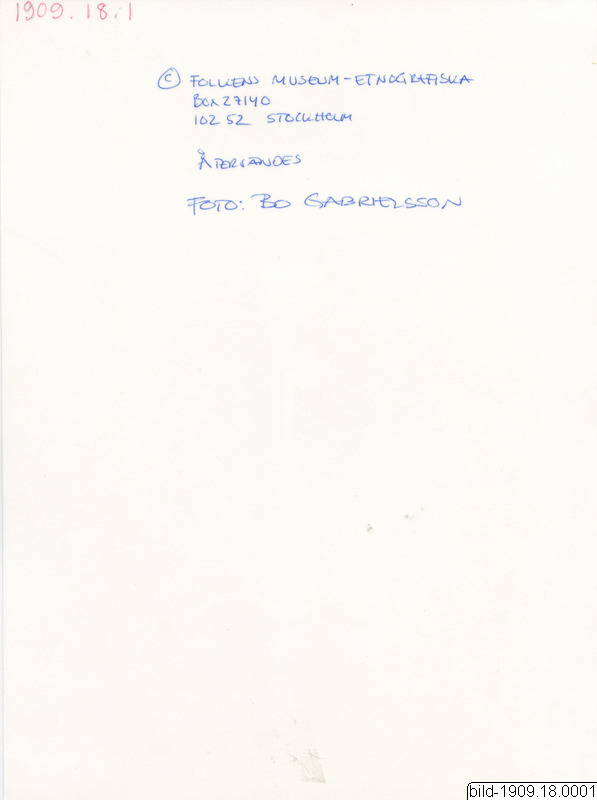 1909.18.1
© FOLKENS MUSEUM-ETNOGRAFISKA
BOX 27140
102 52 STOCKHOLM
ÅTERSÄNDES
FOTO: BO GABRIELSSON
bild-1909.18.0001